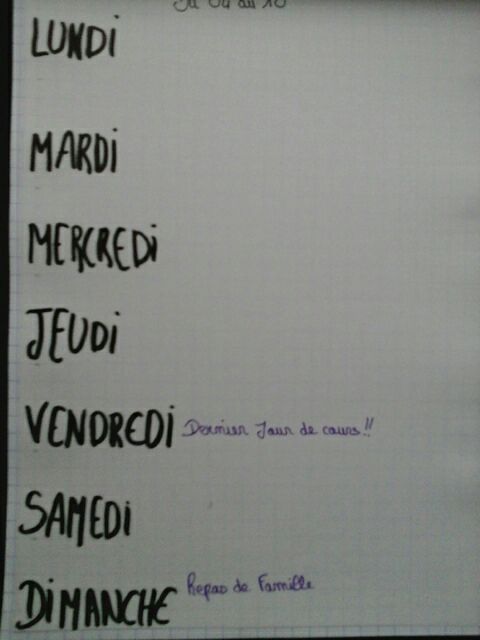 du 04 au 10
LUNDi
MARDi
MERCREDi
JEUDi
VENDREDi Dernier Jour de cours!!
SAMEDi
DiMANCHE Repas de Famille